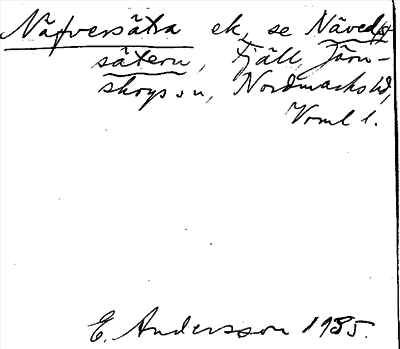 Näfversätra ek, se Näveds-
sätern, fjäll, Järn-
skogs sn, Nordmarks hd,
Vrml l.
E. Andersson 1935.